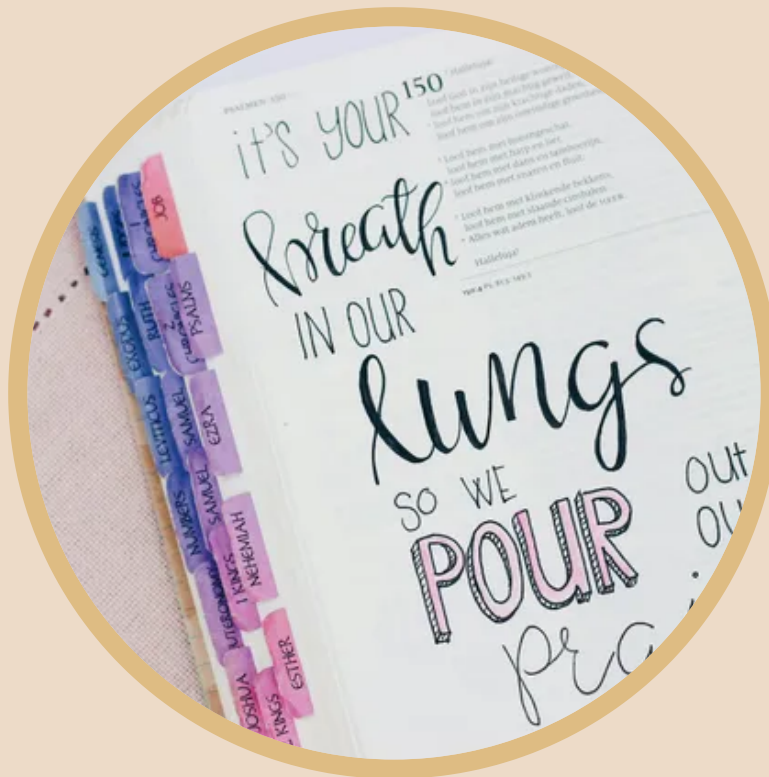 PSALMEN 150
150
Halleluja!
Loof God in zijn heilige
loof hem in zijn machtig gewelf,
loof hem om zijn krachtige daden,
loof hem om zijn oneindige
Loof hem met hoorngeschal,
loof hem met harp en lier,
loof hem met dans en tamboerijn,
loof hem met snaren en fluit.
Loof hem met klinkende bekkens,
loof hem met slaande cimbalen.
Alles wat adem heeft, loof de HEER.
Halleluja!
it's YOUR
breath
IN OUR
lungs
SO WE
POUR
OUt
OU
pra
JOB
PSALMS
RUTH
EXODUS
LEVITICUS
SAMUEL
EZRA
NUMBERS
SAMUEL
1 KINGS
NEHEMIAH
UTERONOM
ESTHER
JOSHUA
KINGS